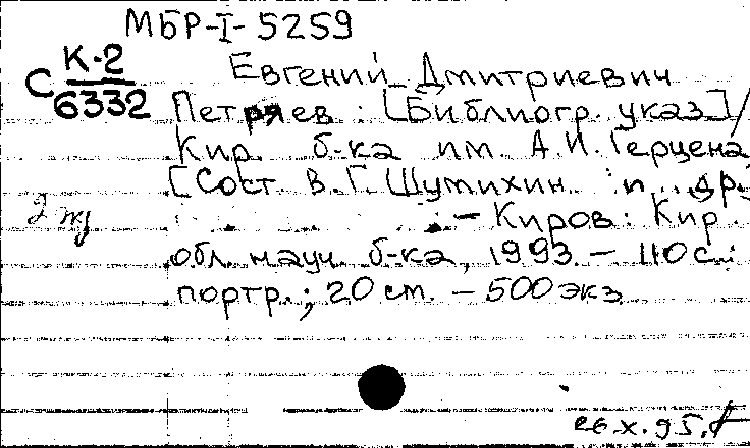 МБР-I-5259
С К-2
6332
Евгений Дмитриевич
Петряев : [Библиогр. указ.] /
Кир. б-ка им. А.И.Герцена
[Сост. В.Г. Шумихин и др.
2
– Киров : Кир.
обл. науч. б-ка, 1993. – 110 с.:
портр.; 20 см. – 500 экз
26.X.95.